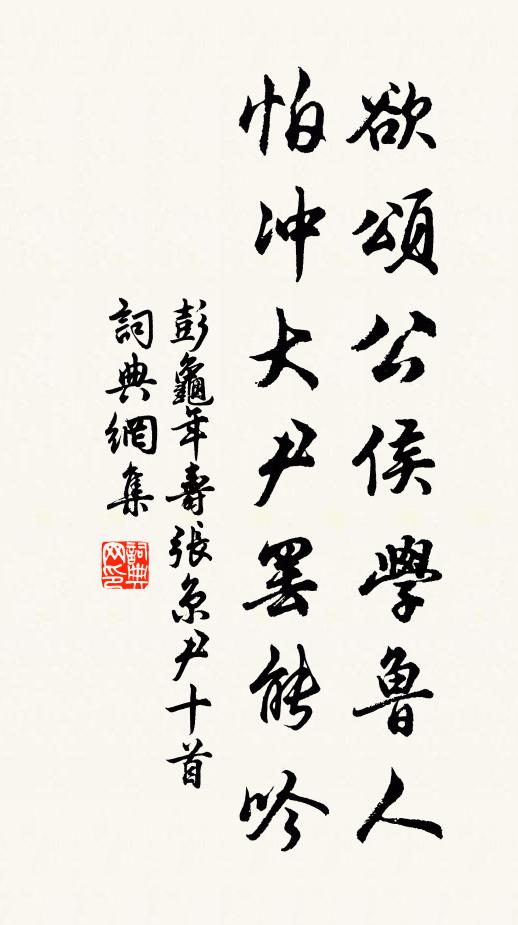 欲頌公侯學魯人
怕冲大尹罷能吟
彭龜年壽張京尹十首
詞典網集
詞典网印